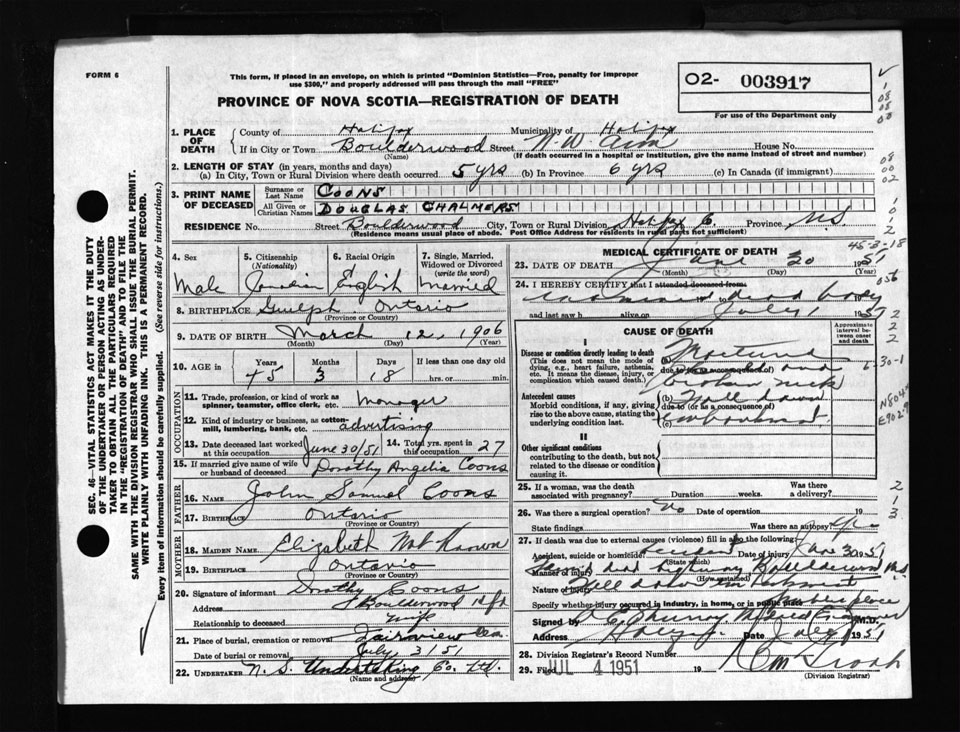 FORM 6
This form, if placed in an envelope, on which is printed "Dominion Statistics—Free, penalty for improper
use $300," and properly addressed will pass through the mail "FREE"
O2- 003917
For use of the Department only
PROVINCE OF NOVA SCOTIA—REGISTRATION OF DEATH
SEC. 46—VITAL STATISTICS ACT MAKES IT THE DUTY
OF THE UNDERTAKER OR PERSON ACTING AS UNDER-
TAKER TO OBTAIN ALL THE PARTICULARS REQUIRED
IN THE "REGISTRATION OF DEATH" AND TO FILE THE
SAME WITH THE DIVISION REGISTRAR WHO SHALL ISSUE THE BURIAL PERMIT.
WRITE PLAINLY WITH UNFADING INK. THIS IS A PERMANENT RECORD.
Every item of information should be carefully supplied. (See reverse side for instructions.)
1. PLACE OF DEATH County of Halifax Municipality of Halifax
If in City or Town Boulderwood Street N.W. Arm House No.
(Name) (If death occurred in a hospital or institution, give the name instead of street and number)
2. LENGTH OF STAY (in years, months and days)
(a) In City, Town or Rural Division where death occurred 5 yrs (b) In Province 6 yrs (c) In Canada (if immigrant)
3. PRINT NAME OF DECEASED Surname or Last Name COONS
All Given or Christian Names DOUGLAS CHALMERS
RESIDENCE No. Street Boulderwood City, Town or Rural Division Halifax C. Province N.S.
(Residence means usual place of abode. Post Office Address for residents in rural parts not sufficient)
4. Sex Male
5. Citizenship (Nationality) Canadian
6. Racial Origin English
7. Single, Married, Widowed or Divorced (write the word) Married
8. BIRTHPLACE Guelph Ontario
(Province or Country)
9. DATE OF BIRTH March 12, 1906
(Month) (Day) (Year)
10. AGE in Years 45 Months 3 Days 8 If less than one day old hrs. or min.
OCCUPATION
11. Trade, profession, or kind of work as spinner, teamster, office clerk, etc. Manager
12. Kind of industry or business, as cotton-mill, lumbering, bank, etc. advertising
13. Date deceased last worked at this occupation June 30/51 14. Total yrs. spent in this occupation 27
15. If married give name of wife or husband of deceased Dorothy Angelia Coons
FATHER
16. Name John Samuel Coons
17. Birthplace Ontario
(Province or Country)
MOTHER
18. Maiden Name Elizabeth Not Known
19. Birthplace Ontario
(Province or Country)
20. Signature of informant Dorothy Coons
Address Boulderwood Hfx
Relationship to deceased wife
21. Place of burial, cremation or removal Fairview Cem.
Date of burial or removal July 3/51
22. UNDERTAKER N. S. Undertaking Co. Ltd.
(Name and address)
MEDICAL CERTIFICATE OF DEATH
23. DATE OF DEATH June 30 1951
(Month) (Day) (Year)
24. I HEREBY CERTIFY that I attended deceased from
dead body
and last saw h alive on July 1 1951
CAUSE OF DEATH
Approximate interval between onset and death
I
Disease or condition directly leading to death
(This does not mean the mode of dying, e.g., heart failure, asthenia, etc. It means the disease, injury, or complication which caused death.)
(a)
due to (or as a consequence of)
broken neck
Antecedent causes
Morbid conditions, if any, giving rise to the above cause, stating the underlying condition last.
(b) Fell down
due to (or as a consequence of)
(c) embankment
II
Other significant conditions
contributing to the death, but not related to the disease or condition causing it
25. If a woman, was the death associated with pregnancy? Duration weeks. Was there a delivery?
26. Was there a surgical operation? No Date of operation 19
State findings Was there an autopsy?
27. If death was due to external causes (violence) fill in also the following:
Accident, suicide or homicide? Date of injury June 30 1951
(State which)
Manner of injury highway Boulderwood N.S.
(How sustained)
Nature of injury Fell down embankment
Specify whether injury occurred in industry, in home, or in public place public place
Signed by M.D.
Address Halifax Date July 1951
28. Division Registrar's Record Number
29. Filed JUL 4 1951 19
(Division Registrar)